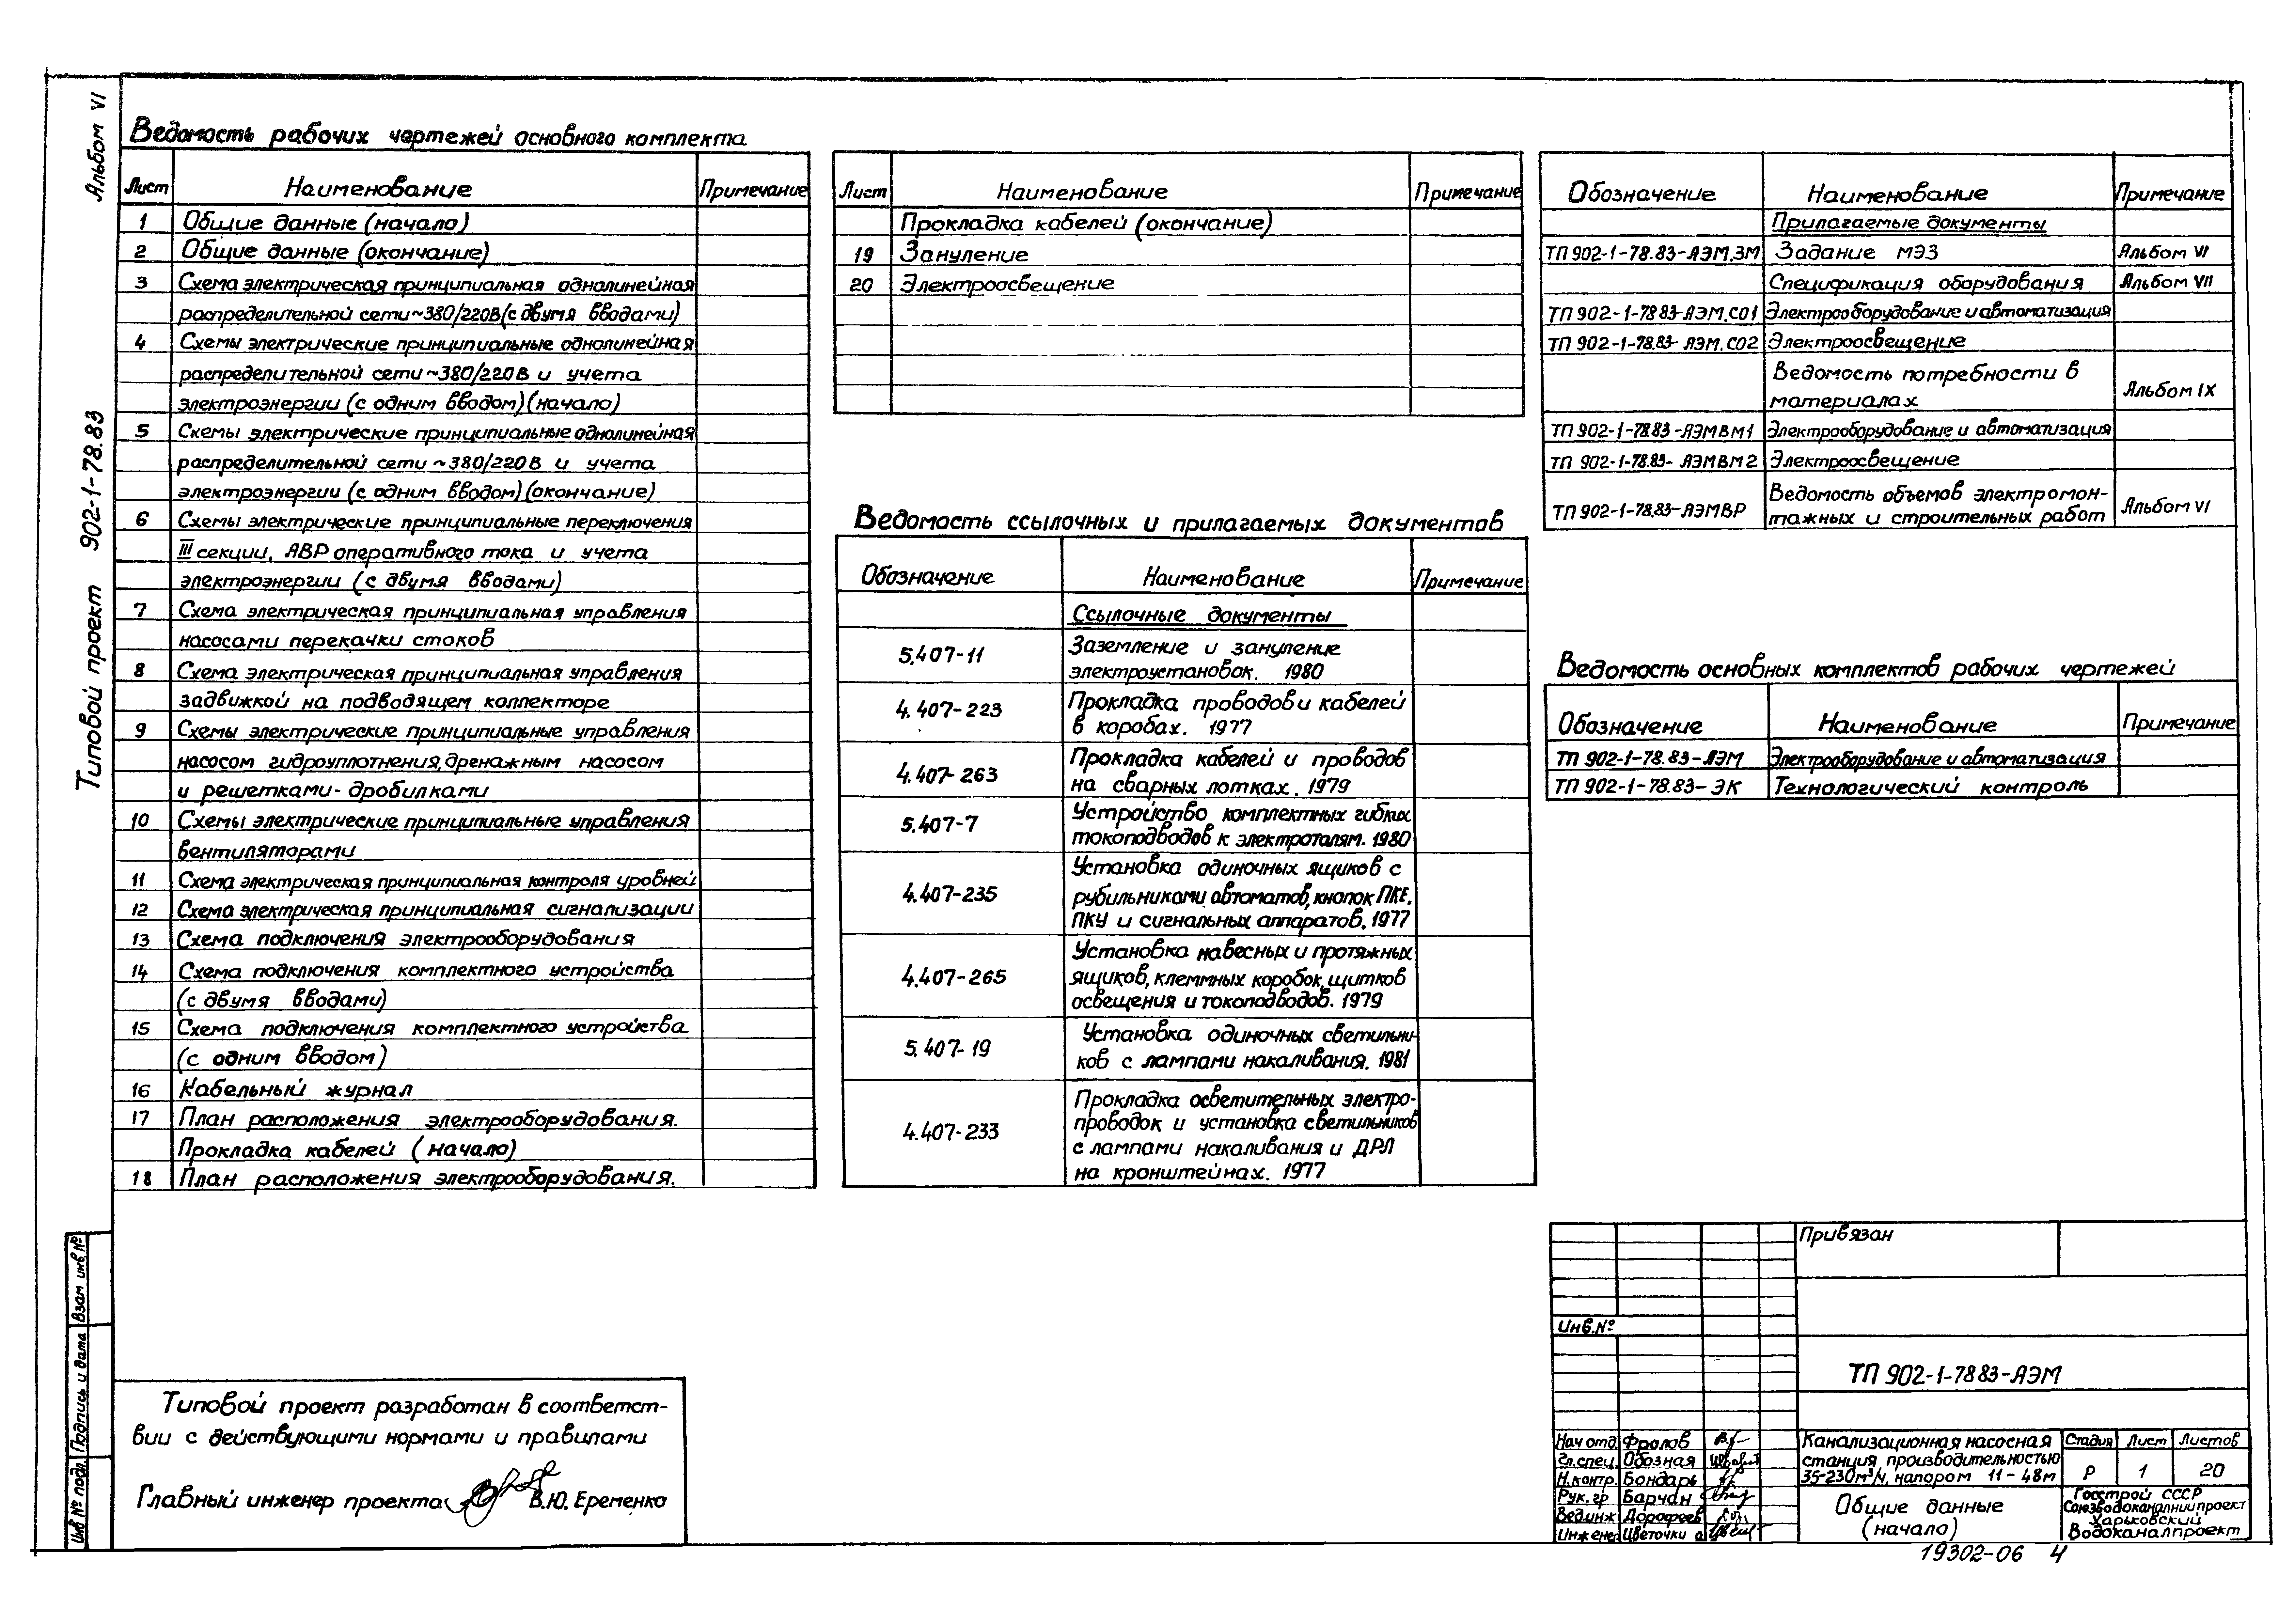 Альбом VI
Типовой проект 902-1-78.83
Ведомость рабочих чертежей основного комплекта
Лист Наименование Примечание
1 Общие данные (начало)
2 Общие данные (окончание)
3 Схема электрическая принципиальная однолинейная
распределительной сети ~380/220В (с двумя вводами)
4 Схемы электрические принципиальные однолинейная
распределительной сети ~380/220В и учета
электроэнергии (с одним вводом) (начало)
5 Схемы электрические принципиальные однолинейная
распределительной сети ~380/220В и учета
электроэнергии (с одним вводом) (окончание)
6 Схемы электрические принципиальные переключения
III секции, АВР оперативного тока и учета
электроэнергии (с двумя вводами)
7 Схема электрическая принципиальная управления
насосами перекачки стоков
8 Схема электрическая принципиальная управления
задвижкой на подводящем коллекторе
9 Схемы электрические принципиальные управления
насосом гидроуплотнения, дренажным насосом
и решетками-дробилками
10 Схемы электрические принципиальные управления
вентиляторами
11 Схема электрическая принципиальная контроля уровней
12 Схема электрическая принципиальная сигнализации
13 Схема подключения электрооборудования
14 Схема подключения комплектного устройства
(с двумя вводами)
15 Схема подключения комплектного устройства
(с одним вводом)
16 Кабельный журнал
17 План расположения электрооборудования.
Прокладка кабелей (начало)
18 План расположения электрооборудования.
Лист Наименование Примечание
Прокладка кабелей (окончание)
19 Зануление
20 Электроосвещение
Ведомость ссылочных и прилагаемых документов
Обозначение Наименование Примечание
Ссылочные документы
5.407-11 Заземление и зануление
электроустановок. 1980
4.407-223 Прокладка проводов и кабелей
в коробах. 1977
4.407-263 Прокладка кабелей и проводов
на сварных лотках. 1979
5.407-7 Устройство комплектных гибких
токоподводов к электроталям. 1980
4.407-235 Установка одиночных ящиков с
рубильниками автоматов, кнопок ПКЕ,
ПКУ и сигнальных аппаратов. 1977
4.407-265 Установка навесных и протяжных
ящиков, клеммных коробок, щитков
освещения и токоподводов. 1979
5.407-19 Установка одиночных светильни-
ков с лампами накаливания. 1981
4.407-233 Прокладка осветительных электро-
проводок и установка светильников
с лампами накаливания и ДРЛ
на кронштейнах. 1977
Обозначение Наименование Примечание
Прилагаемые документы
ТП 902-1-78.83-АЭМ.ЗМ Задание МЭЗ Альбом VI
Спецификация оборудования Альбом VII
ТП 902-1-78.83-АЭМ.СО1 Электрооборудование и автоматизация
ТП 902-1-78.83-АЭМ.СО2 Электроосвещение
Ведомость потребности в
материалах Альбом IX
ТП 902-1-78.83-АЭМВМ1 Электрооборудование и автоматизация
ТП 902-1-78.83-АЭМВМ2 Электроосвещение
ТП 902-1-78.83-АЭМВР Ведомость объемов электромон-
тажных и строительных работ Альбом VI
Ведомость основных комплектов рабочих чертежей
Обозначение Наименование Примечание
ТП 902-1-78.83-АЭМ Электрооборудование и автоматизация
ТП 902-1-78.83-ЭК Технологический контроль
Взам инв.№
Подпись и дата
Инв № подл.
Типовой проект разработан в соответст-
вии с действующими нормами и правилами
Главный инженер проекта В.Ю. Еременко
Привязан
Инв.№
ТП 902-1-78 83-АЭМ
Нач отд. Фролов
Гл.спец. Обозная
Н.контр. Бондарь
Рук.гр Барчан
Вед.инж Дорофеев
Инженер
Канализационная насосная
станция производительностью
35-230м³/ч, напором 11-48м
Стадия Лист Листов
Р 1 20
Общие данные
(начало)
Госстрой СССР
Союзводоканалниипроект
Харьковский
Водоканалпроект
19302-06 4